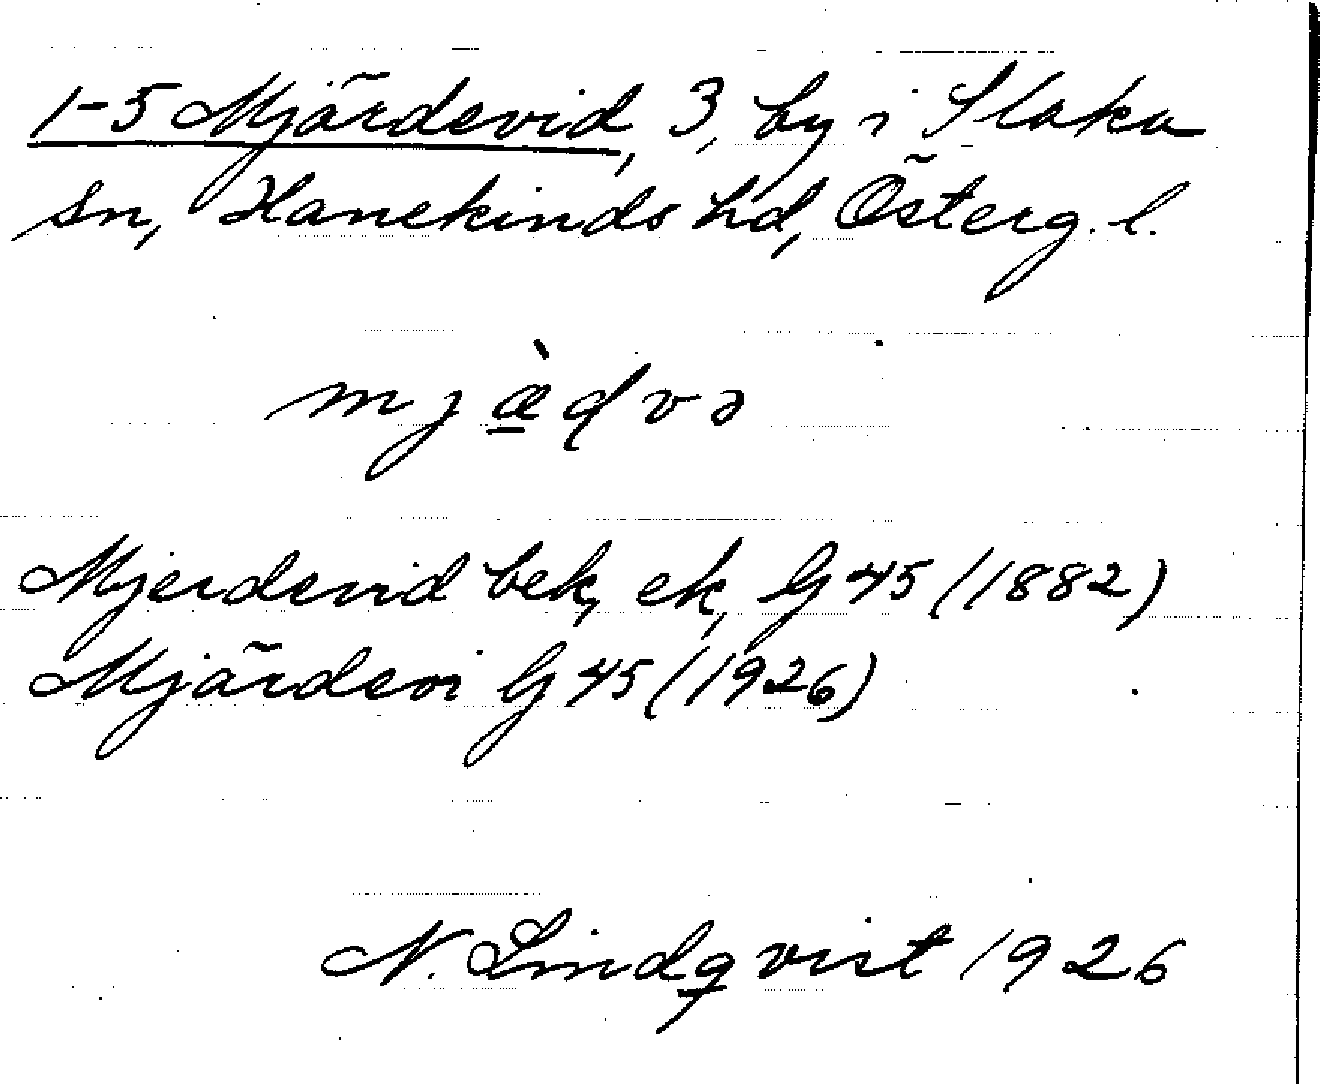 1-5 Mjärdevid, 3, by i Slaka
sn, Hanekinds hd, Österg. l.
mjæ̀ɖvə
Mjerdevid bek, ek, G 45 (1882)
Mjärdevi G 45 (1926)
N. Lindqvist 1926